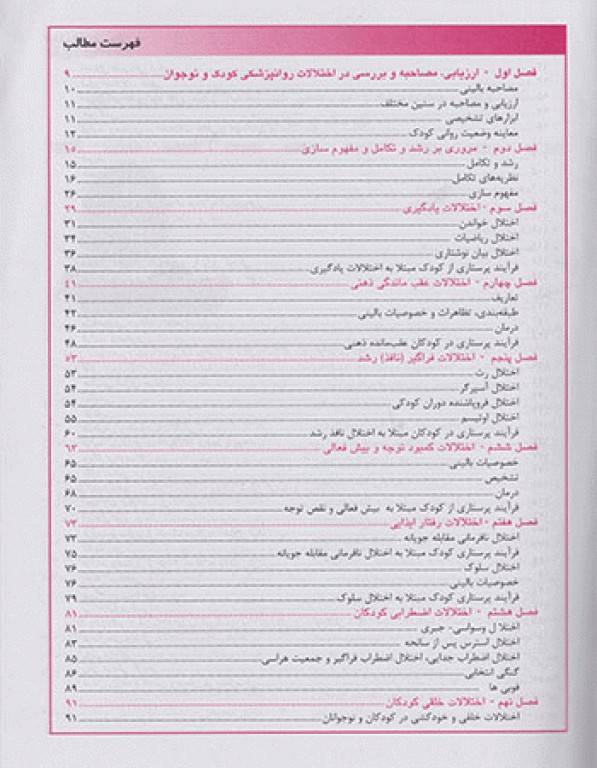 فهرست مطالب
فصل اول - ارزیابی، مصاحبه و بررسی در اختلالات روانپزشکی کودک و نوجوان ۹
مصاحبه بالینی ۱۰
ارزیابی و مصاحبه در سنین مختلف ۱۱
ابزارهای تشخیصی ۱۱
معاینه وضعیت روانی کودک ۱۲
فصل دوم - مروری بر رشد و تکامل و مفهوم سازی ۱۵
رشد و تکامل ۱۵
نظریه‌های تکامل ۱۶
مفهوم سازی ۲۶
فصل سوم - اختلالات یادگیری ۲۹
اختلال خواندن ۳۱
اختلال ریاضیات ۳۴
اختلال بیان نوشتاری ۳۶
فرآیند پرستاری از کودک مبتلا به اختلالات یادگیری ۳۸
فصل چهارم - اختلالات عقب ماندگی ذهنی ۴۱
تعاریف ۴۱
طبقه‌بندی، تظاهرات و خصوصیات بالینی ۴۲
درمان ۴۶
فرآیند پرستاری در کودکان عقب‌مانده ذهنی ۴۸
فصل پنجم - اختلالات فراگیر (نافذ) رشد ۵۳
اختلال رت ۵۳
اختلال آسپرگر ۵۴
اختلال فروپاشنده دوران کودکی ۵۴
اختلال اوتیسم ۵۵
فرآیند پرستاری در کودکان مبتلا به اختلال نافذ رشد ۶۰
فصل ششم - اختلالات کمبود توجه و بیش فعالی ۶۳
خصوصیات بالینی ۶۵
تشخیص ۶۵
درمان ۶۸
فرآیند پرستاری از کودک مبتلا به بیش فعالی و نقص توجه ۷۰
فصل هفتم - اختلالات رفتار ایذایی ۷۳
اختلال نافرمانی مقابله جویانه ۷۳
فرآیند پرستاری کودک مبتلا به اختلال نافرمانی مقابله جویانه ۷۵
اختلال سلوک ۷۶
خصوصیات بالینی ۷۶
فرآیند پرستاری کودک مبتلا به اختلال سلوک ۷۹
فصل هشتم - اختلالات اضطرابی کودکان ۸۱
اختلا ل وسواسی- جبری ۸۱
اختلال استرس پس از سانحه ۸۳
اختلال اضطراب جدایی، اختلال اضطراب فراگیر و جمعیت هراسی ۸۵
گنگی انتخابی ۸۶
فوبی ها ۸۹
فصل نهم - اختلالات خلقی کودکان ۹۱
اختلالات خلقی و خودکشی در کودکان و نوجوانان ۹۱